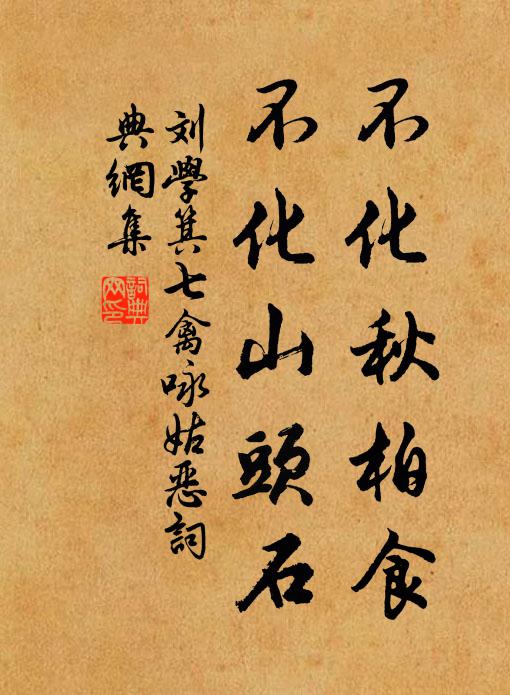 不化秋柏食
不化山頭石
刘學箕七禽咏姑恶詞
典網集
詞典
网印